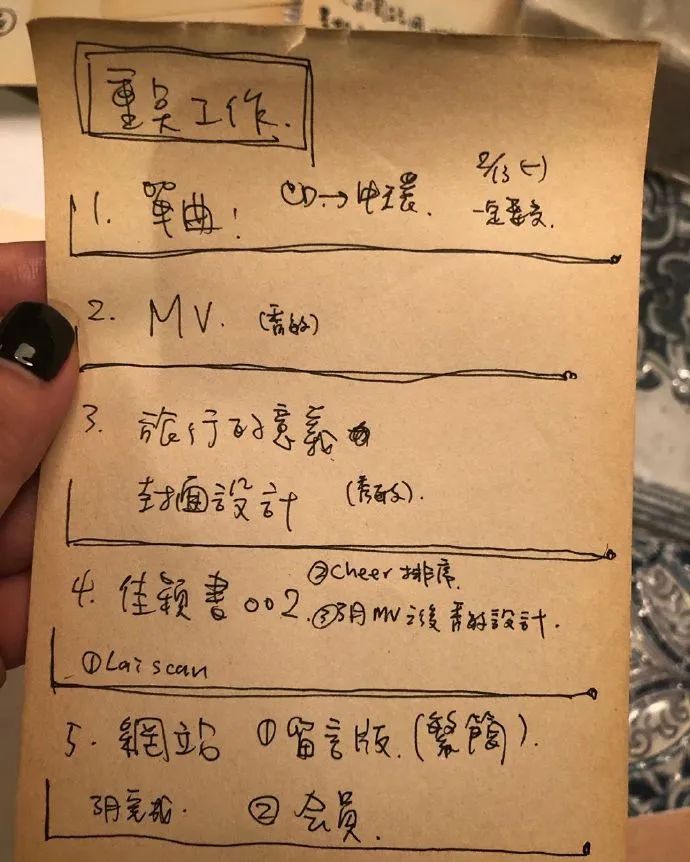 重點工作.
1. 單曲! CD→中環. 2/13 (一)
一定要交.
2. MV. (秀的)
3. 旅行的意義
封面設計 (秀的).
4. 佳穎書002. ②Cheer排序.
③3月MV之後秀的設計.
①Lai scan
5. 網站 ①留言版.(繁簡).
3月完成. ②会員.